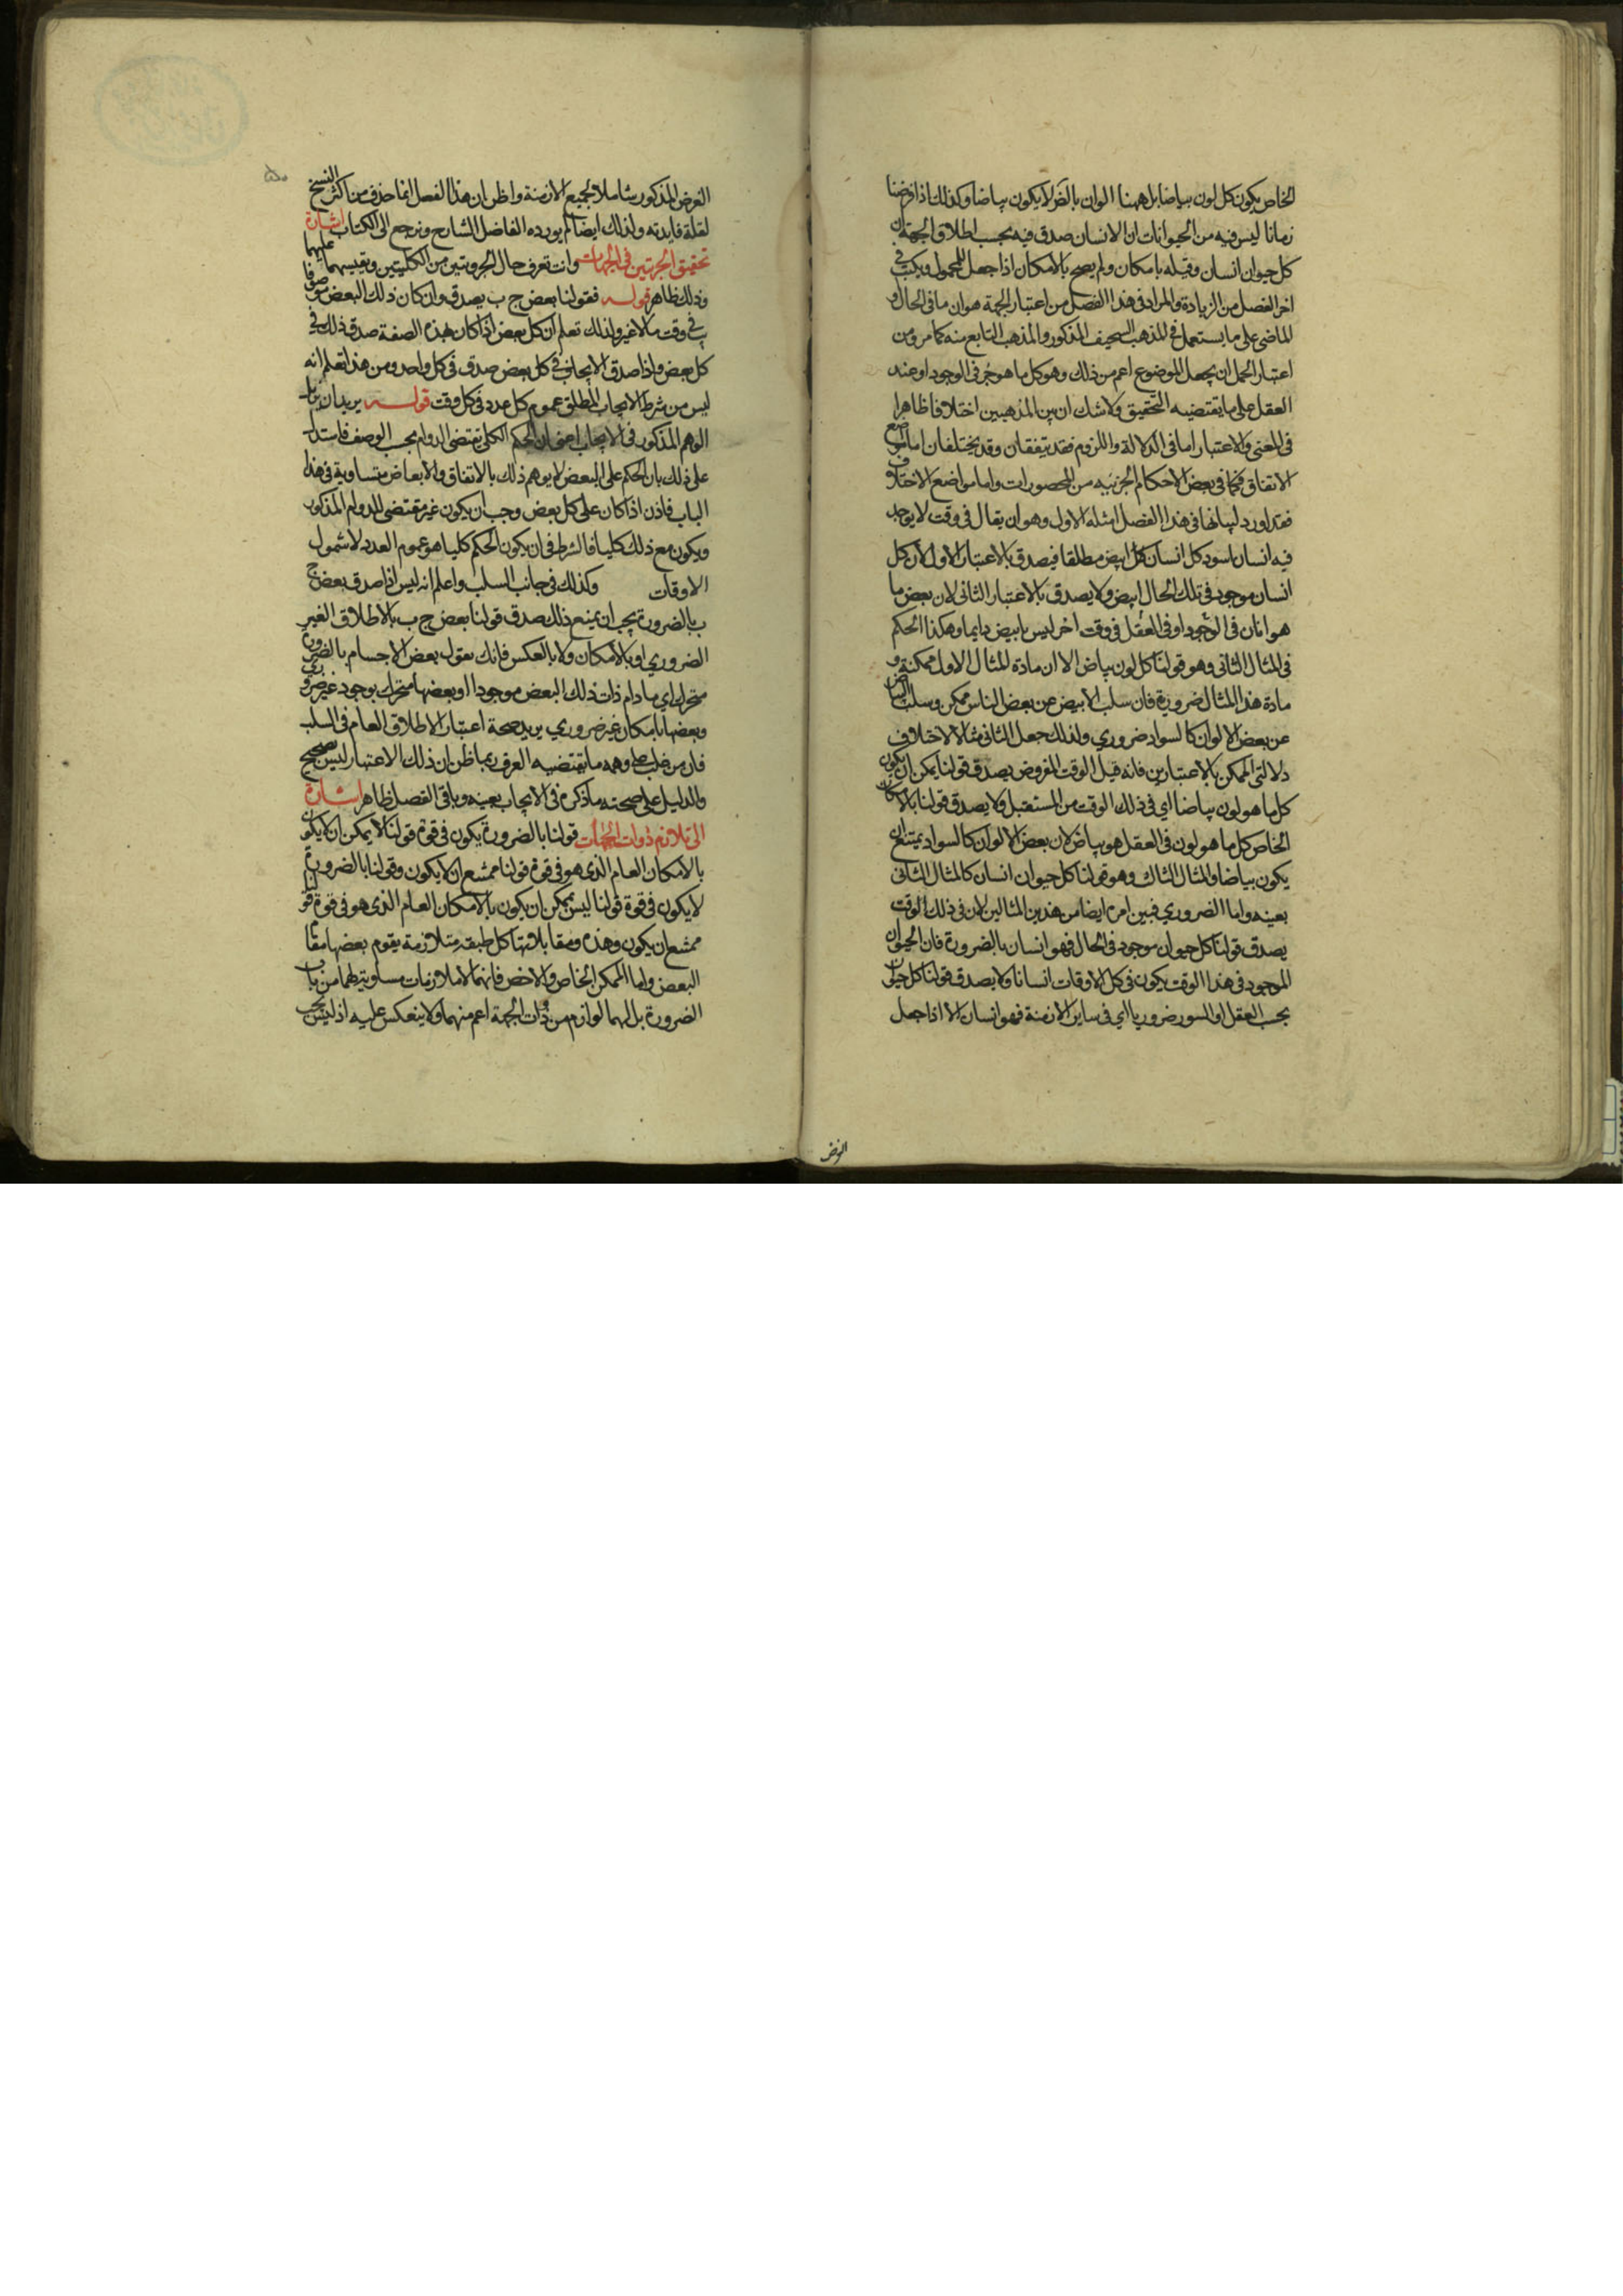 الخاص يكون كل لون بياضا بل ههنا الوان بالضرلا يكون بياضا وكذلك اذا فرضنا
زمانا ليس فيه من الحيوانات الا الانسان صدق فيه بحسب اطلاق الجهة ان
كل حيوان انسان وقبله بامكان ولم يصح بالامكان اذا جعل للمحمول ويكتب في
اخر الفصل من الزيادة والمراد في هذا الفصل من اعتبار الجهة هو ان ما في الحال او
الماضي على ما يستعمل في المذهب السخيف المذكور والمذهب التابع منه كما مر ومن
اعتبار الحمل ان يجعل الموضوع اعم من ذلك وهو كل ما هو ج في الوجود او عند
العقل على ما يقتضيه التحقيق ولا شك ان بين المذهبين اختلافا ظاهرا
في المعنى والاعتبار اما في الدلالة واللزوم فقد يتفقان وقد يختلفان اما مواضع
الاتفاق فكما في بعض الاحكام الجزئيه من المحصورات واما مواضع الاختلاف
فقد اورد لبيانها في هذا الفصل امثله الاول وهو ان يقال في وقت لا يوجد
فيه انسان اسود كل انسان ابيض مطلقا فيصدق بالاعتبار الاول لان كل
انسان موجود في تلك الحال ابيض ولا يصدق بالاعتبار الثاني لان بعض ما
هو انسان في الوجود او في العقل في وقت اخر ليس بابيض دايما وهكذا الحكم
في المثال الثاني وهو قولنا كل لون بياض الا ان مادة المثال الاول ممكنة و
مادة هذا المثال ضرورية فان سلب الابيض عن بعض الناس ممكن وسلب البياض
عن بعض الالوان كالسواد ضروري ولذلك جعل الثاني مثالا لاختلاف
دلالتي الممكن بالاعتبارين فانه قبل الوقت المفروض يصدق قولنا يمكن ان يكون
كل ما هو لون بياضا اي في ذلك الوقت من المستقبل ولا يصدق قولنا بالامكان
الخاص كل ما هو لون في العقل هو بياض لان بعض الالوان كالسواد يمتنع ان
يكون بياضا والمثال الثالث وهو قولنا كل حيوان انسان كالمثال الثاني
بعينه واما الضروري فبين امره ايضا من هذين المثالين لان في ذلك الوقت
يصدق قولنا كل حيوان موجود في الحال فهو انسان بالضرورة فان الحيوان
الموجود في هذا الوقت يكون في كل الاوقات انسانا ولا يصدق قولنا كل حيوان
بحسب العقل او السور ضروريا اي في ساير الازمنة فهو انسان الا اذا جعل
الفرض
الفرض المذكور شاملا لجميع الازمنة واظن ان هذا الفصل انما حذف من اكثر النسخ
لقلة فايدته ولذلك ايضا لم يورده الفاضل الشارح ونرجع الى الكتاب اشارة
تحقيق الجزئيتين في الجهات وانت تعرف حال الجزويتين من الكليتين وتقيسهما عليهما
وذلك ظاهر قوله فقولنا بعض ج ب يصدق وان كان ذلك البعض موصوفا
ب في وقت ما لا غير ولذلك تعلم ان كل بعض اذا كان بهذه الصفة صدق ذلك في
كل بعض واذا صدق الايجاب في كل بعض صدق في كل واحد ومن هذا تعلم انه
ليس من شرط الايجاب المطلق عموم كل عدد في كل وقت قوله يريد ان يزيل
الوهم المذكور في الايجاب اعني ان الحكم الكلي تقتضى الدوام بحسب الوصف فاستدل
على ذلك بان الحكم على البعض لا يوهم ذلك بالاتفاق والابعاض متساوية في هذا
الباب فاذن اذا كان على كل بعض وجب ان يكون غير مقتضى للدوام المذكور
ويكون مع ذلك كليا فالشرط في ان يكون الحكم كليا هو عموم العدد لا شمول
الاوقات وكذلك في جانب السلب واعلم انه ليس اذا صدق بعض ج
ب بالضرورة يجب ان يمنع ذلك صدق قولنا بعض ج ب بالاطلاق الغير
الضروري او بالامكان ولا بالعكس فانك تقول بعض الاجسام بالضرورة
متحرك اي ما دام ذات ذلك البعض موجودا وبعضها متحرك بوجود غير ضروري
وبعضها بامكان غير ضروري يريد صحة اعتبار الاطلاق العام في السلب
فان من غلب على وهمه ما تقتضيه العرف ربما ظن ان ذلك الاعتبار ليس بصحيح
والدليل على صحته ما ذكره في الايجاب بعينه وباقي الفصل ظاهر اشارة
الى تلازم ذوات الجهات قولنا بالضرورة يكون في قوة قولنا لا يمكن ان لا يكون
بالامكان العام الذي هو في قوة قولنا ممتنع ان لا يكون وقولنا بالضرورة
لا يكون في قوة قولنا ليس بممكن ان يكون بالامكان العام الذي هو في قوة قولنا
ممتنع ان يكون وهذه ومقابلاتها كل طبقة متلازمة يقوم بعضها مقام
البعض واما الممكن الخاص والاخص فانهما لا ملازمات مساوية لهما من باب
الضرورة بل لهما لوازم من ذوات الجهة اعم منهما ولا ينعكس عليه اذ ليس يجب